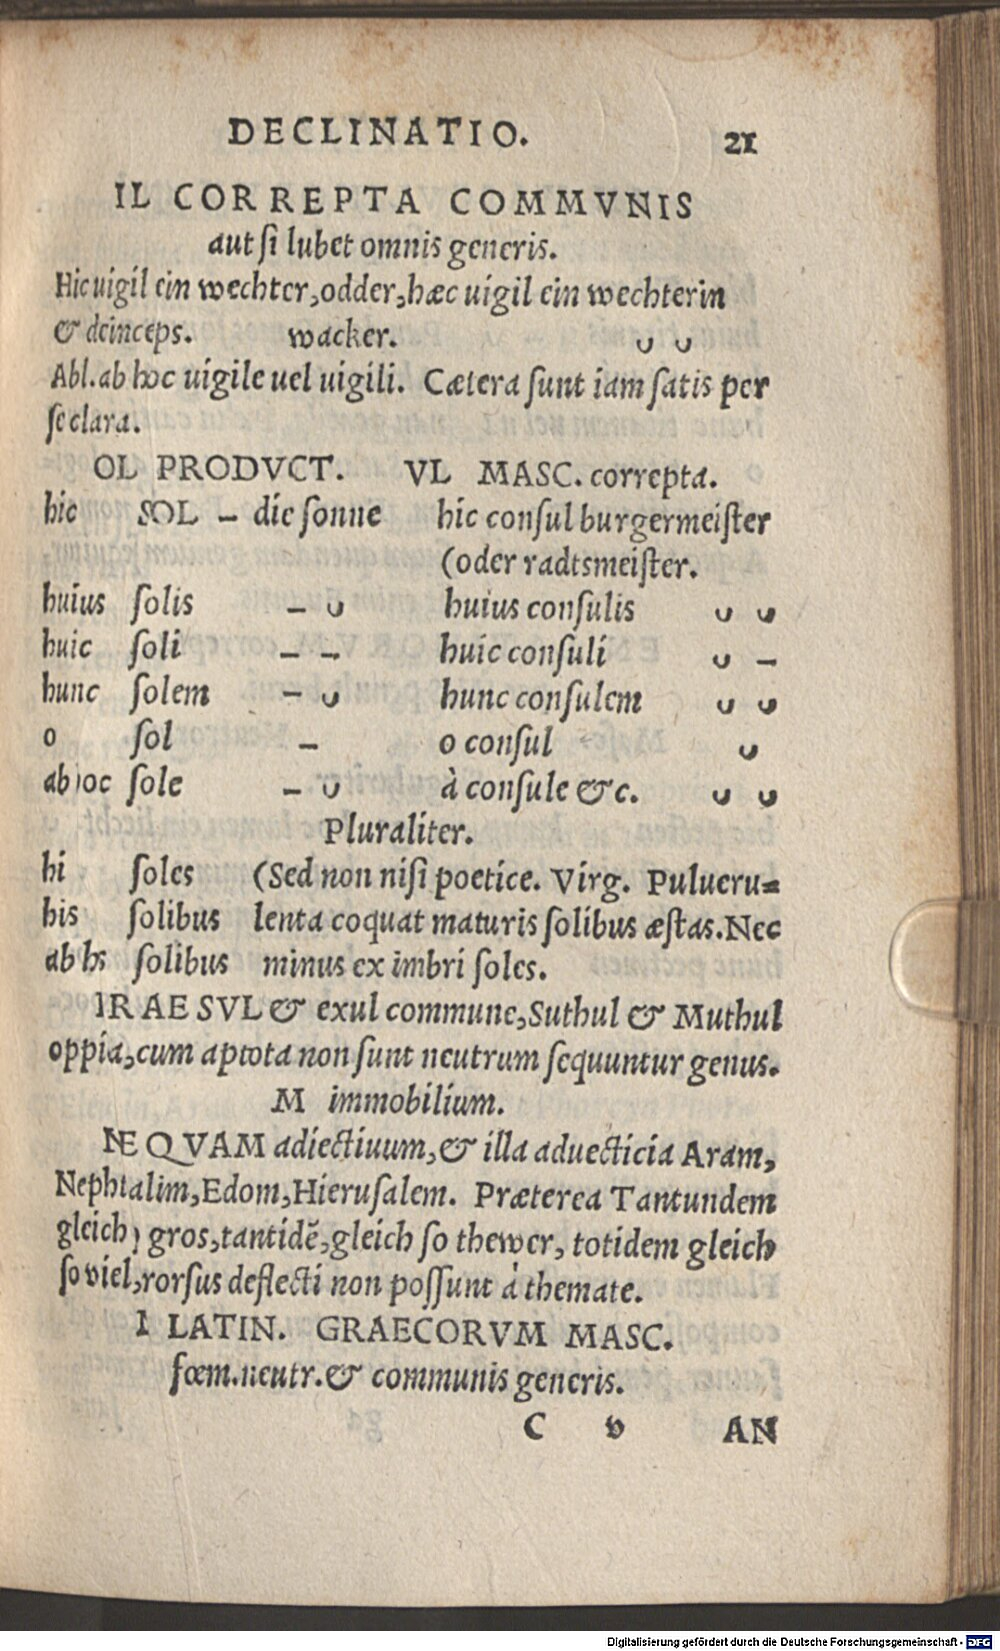 DECLINATIO. 21
IL CORREPTA COMMVNIS
aut ſi lubet omnis generis.
Hic uigil ein wechter, odder, hæc uigil ein wechterin
& deinceps. wacker. ᴗ ᴗ
Abl. ab hoc uigile uel uigili. Cætera ſunt iam ſatis per
ſe clara.
OL PRODVCT. VL MASC. correpta.
hic SOL – die ſonne hic conſul burgermeiſter
(oder radtsmeiſter.
huius ſolis – ᴗ huius conſulis ᴗ ᴗ
huic ſoli – – huic conſuli ᴗ –
hunc ſolem – ᴗ hunc conſulem ᴗ ᴗ
o ſol – o conſul ᴗ
ab hoc ſole – ᴗ à conſule &c. ᴗ ᴗ
Pluraliter.
hi ſoles (Sed non niſi poetice. Virg. Pulueru=
his ſolibus lenta coquat maturis ſolibus æſtas. Nec
ab hs ſolibus minus ex imbri ſoles.
IRAESVL & exul commune, Suthul & Muthul
oppia, cum aptota non ſunt neutrum ſequuntur genus.
M immobilium.
NEQVAM adiectiuum, & illa aduecticia Aram,
Nephtalim, Edom, Hieruſalem. Præterea Tantundem
gleich gros, tantidē, gleich ſo thewer, totidem gleich
ſo viel, rorſus deflecti non poſſunt à themate.
I LATIN. GRAECORVM MASC.
fœm. neutr. & communis generis.
C v AN
Digitalisierung gefördert durch die Deutsche Forschungsgemeinschaft - DFG